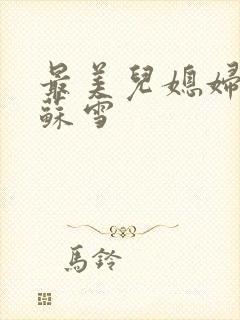 最美兒媳婦
蘇雪
馬鈴